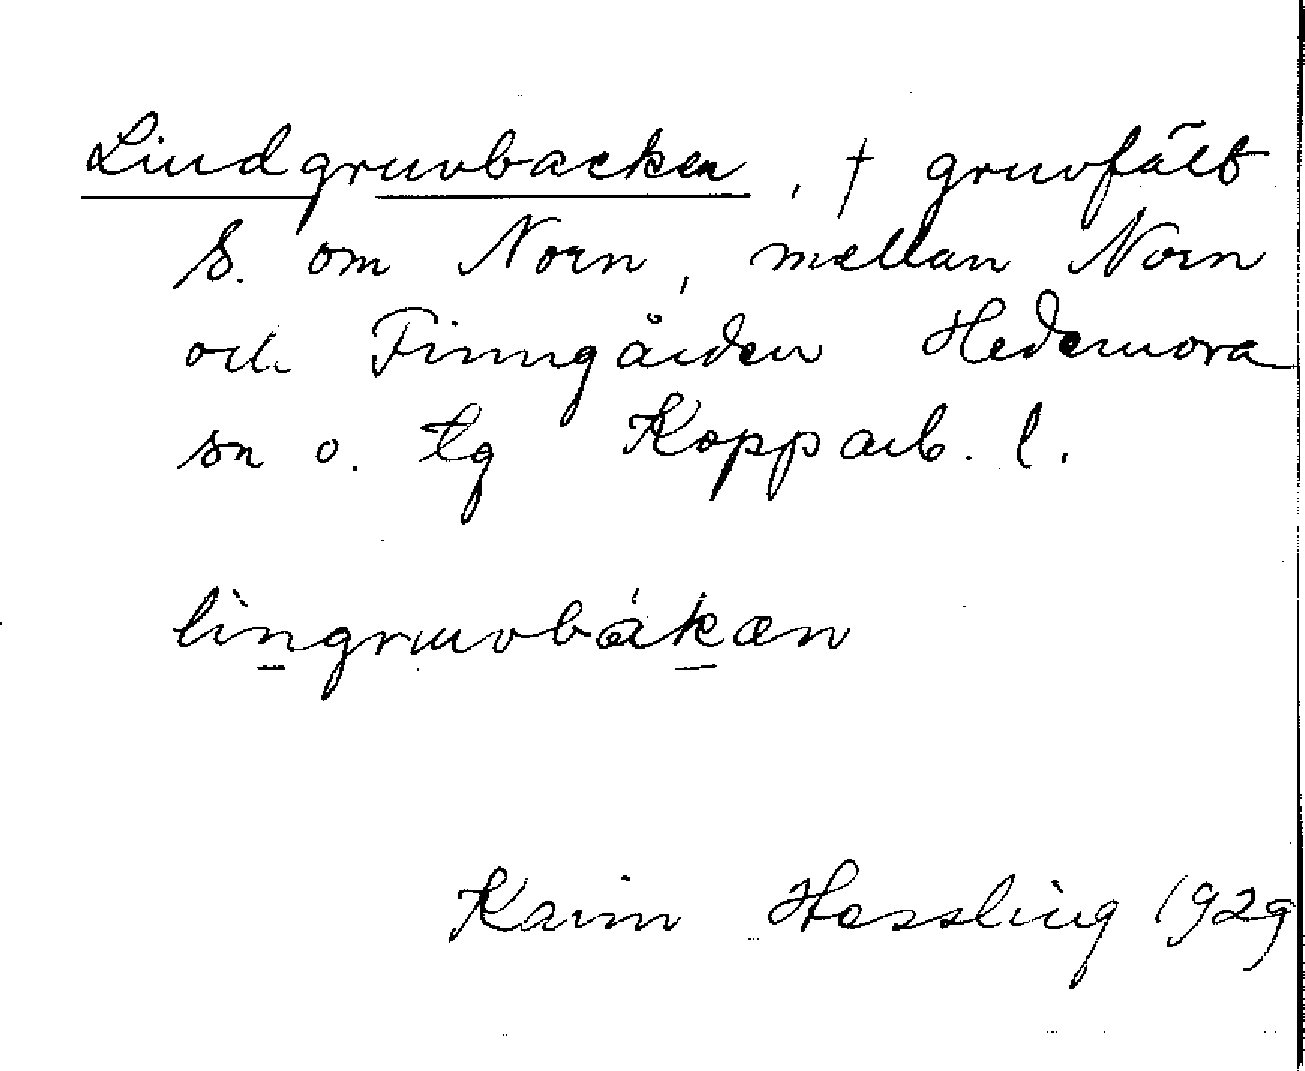 Lindgruvbacken, † gruvfält
S. om Norn, mellan Norn
och Finngården Hedemora
sn o. tg Kopparb. l.
lìngruvbákæn
Karin Hessling 1929